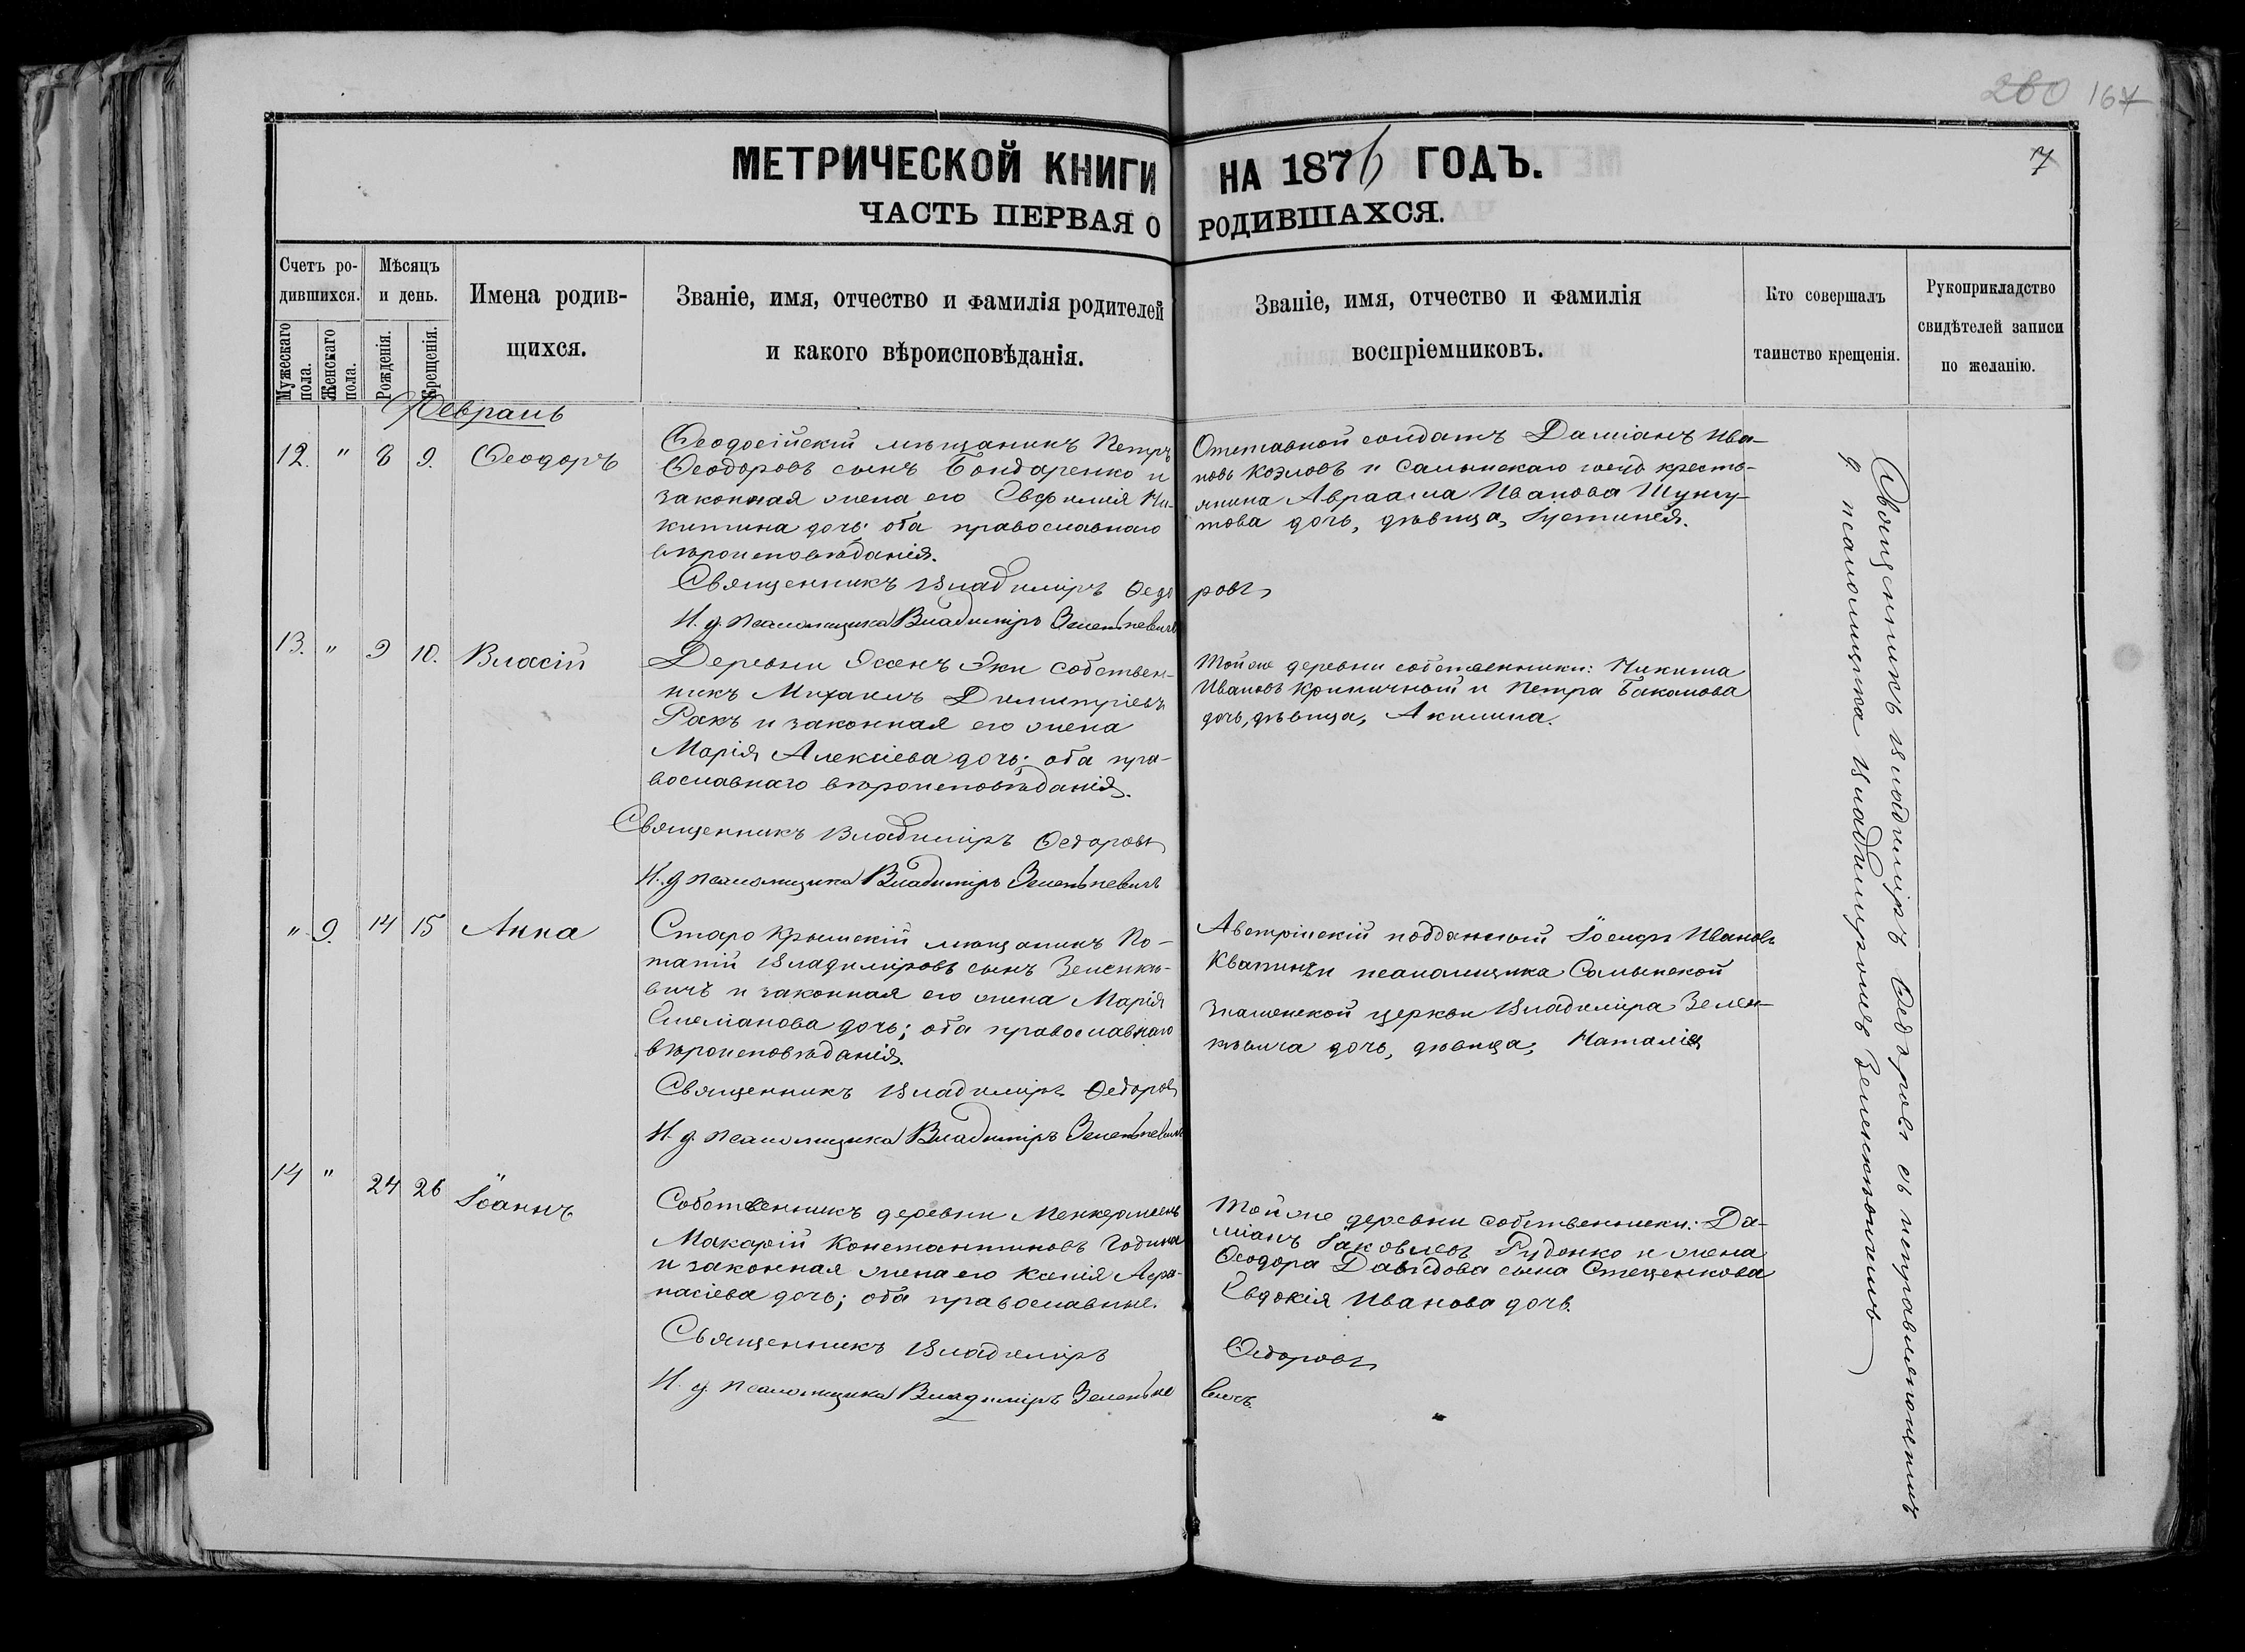 280 167
7
МЕТРИЧЕСКОЙ КНИГИ НА 1876 ГОДЪ.
ЧАСТЬ ПЕРВАЯ О РОДИВШАХСЯ.
Счетъ ро-
дившихся.
Мужескаго пола.
Женскаго пола.
Мѣсяцъ
и день.
Рожденія.
Крещенія.
Имена родив-
щихся.
Званіе, имя, отчество и фамилія родителей
и какого вѣроисповѣданія.
Званіе, имя, отчество и фамилія
воспріемниковъ.
Кто совершалъ
таинство крещенія.
Рукоприкладство
свидѣтелей записи
по желанію.
Февраль
12. " 8 9. Ѳеодоръ
Ѳеодосійскій мѣщанинъ Петръ
Ѳеодоровъ сынъ Бондаренко и
законная жена его Евфимія Ни-
китина дочь; оба православнаго
вѣроисповѣданія.
Священникъ Владиміръ Ѳедоровъ
И. д. псаломщика Владиміръ Зеленкевичъ
Отставной солдатъ Даміанъ Ива-
новъ Козловъ и Салынскаго крестъ-
янина Авраама Иванова
дочь, дѣвица, Іустинія.
13. " 9 10. Власій
Деревни собствен-
никъ Михаилъ Димитріевъ
Ракъ и законная его жена
Марія Алексіева дочь; оба пра-
вославнаго вѣроисповѣданія.
Священникъ Владиміръ Ѳедоровъ
И. д. псаломщика Владиміръ Зеленкевичъ
Той же деревни собственники: Никита
Ивановъ Криничной и Петра Баканова
дочь, дѣвица, Акилина.
" 9. 14 15 Анна
Старо Крымскій мѣщанинъ По-
тапій Владиміровъ сынъ Зеленке-
вичъ и законная его жена Марія
Стефанова дочь; оба православнаго
вѣроисповѣданія.
Священникъ Владиміръ Ѳедоровъ
И. д. псаломщика Владиміръ Зеленкевичъ
Австрійскій подданный Іосифъ Ивановъ
и псаломщика Салынской
Знаменской церкви Владиміра Зелен-
кевича дочь, дѣвица, Наталія
14 " 24 26 Іоаннъ
Собственникъ деревни
Макарій Константиновъ Година
и законная жена его Ксенія Аѳа-
насіева дочь; оба православные.
Священникъ Владиміръ Ѳедоровъ
И. д. псаломщика Владиміръ Зеленкевичъ.
Той же деревни собственники: Да-
міанъ Іаковлевъ Руденко и жена
Ѳеодора Давидова сына Стеценкова
Евдокія Иванова дочь.
Священникъ Владиміръ Ѳедоровъ съ исправляющимъ
д. псаломщика Владиміромъ Зеленкевичемъ